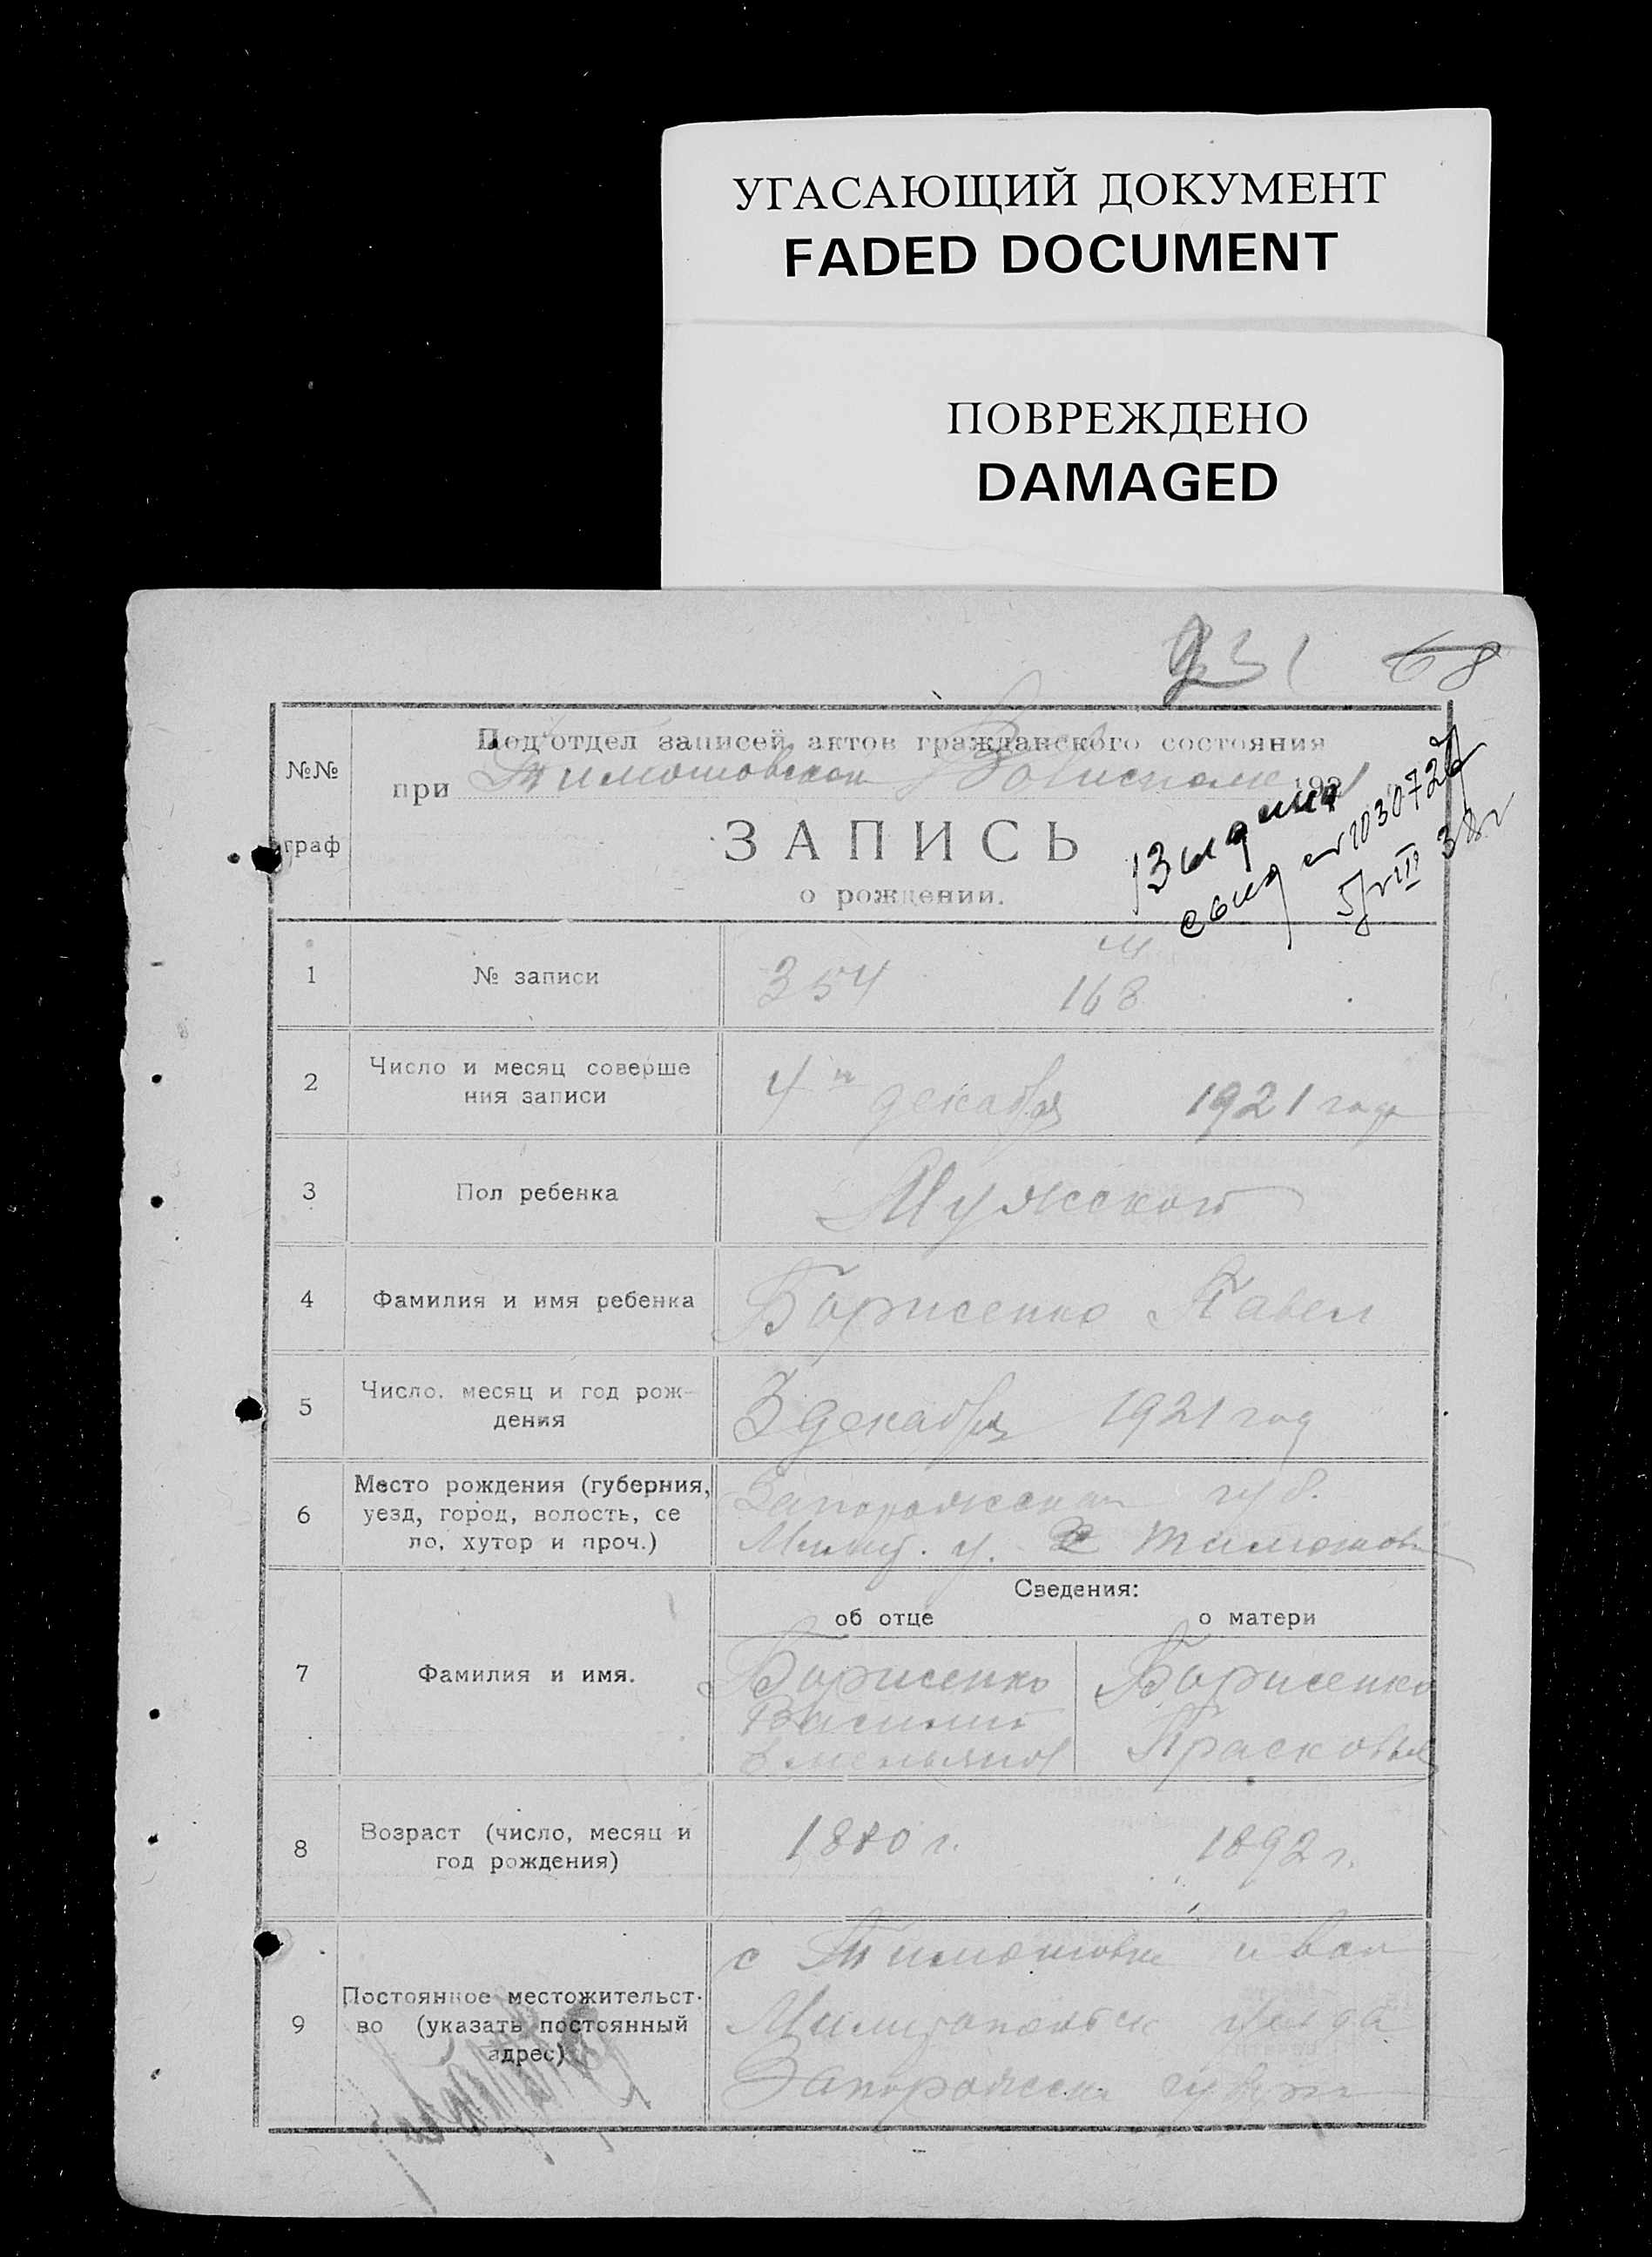 УГАСАЮЩИЙ ДОКУМЕНТ
FADED DOCUMENT
ПОВРЕЖДЕНО
DAMAGED
231 68
Под'отдел записей актов гражданского состояния
№№
при Тимошовском Волисполк 1921
граф
ЗАПИСЬ
о рождении.
1 № записи 354 м 168
2 Число и месяц соверше
ния записи
4го декабря 1921 года
3 Пол ребенка Мужской
4 Фамилия и имя ребенка Борисенко Павел
5 Число. месяц и год рож-
дения
3 декабря 1921 год
6 Место рождения (губерния,
уезд, город, волость, се
ло, хутор и проч.)
Запорожская губ.
у. Тимошовк
Сведения:
об отце о матери
7 Фамилия и имя.
Борисенко Борисенко
Василий Прасковья
Емельянов
8 Возраст (число, месяц и
год рождения)
1880 г. 1892 г.
9 Постоянное местожительст-
во (указать постоянный
адрес)
с Тимошовка и вол
уезда
Запорожск губерн